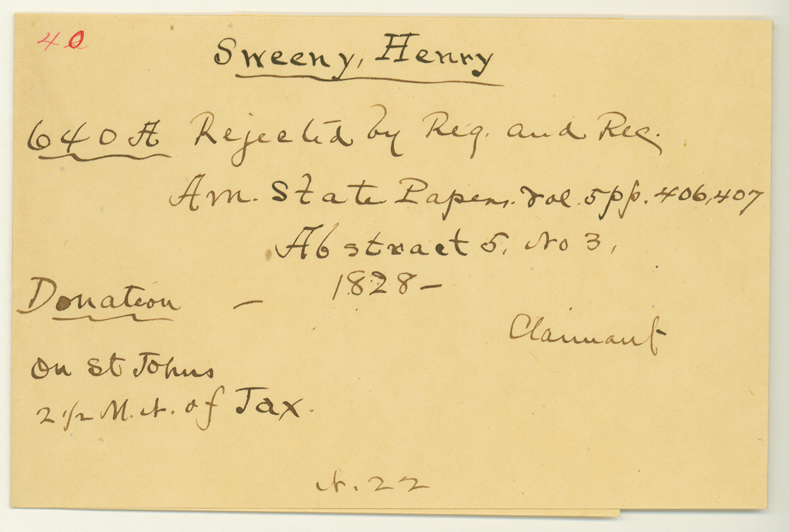 40
Sweeny, Henry
640 A Rejected by Reg. and Rec.
Am. State Papers. vol. 5 pp. 406, 407
Abstract 5, No 3,
1828 –
Donation –
Claimant
On St Johns
2 1/2 M. N. of Jax.
N. 22